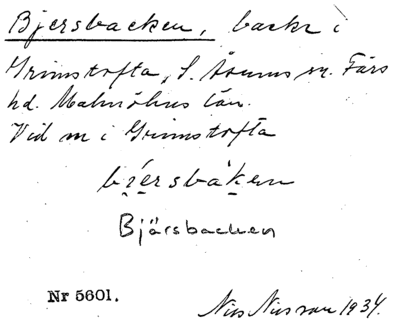 Bjersbacken, backe i
Grimstofta, S. Åsums sn. Färs
hd. Malmöhus län.
Vid m i Grimstofta
Bjärsbacken
Nr 5601.
Nils Nilsson 1934.